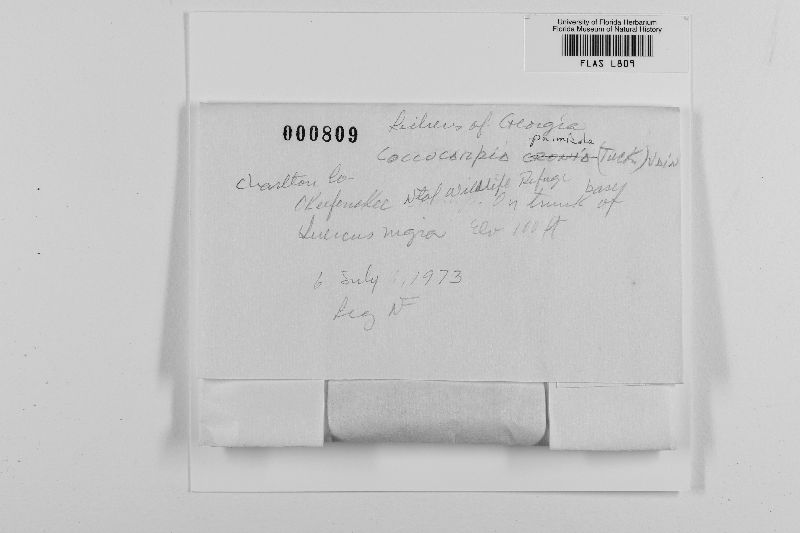 University of Florida Herbarium
Florida Museum of Natural History
FLAS L809
000809
Lichens of Georgia
palmicola
Coccocarpia cronia (Tuck.) Vain
Charlton Co-
Okefenokee Ntal Wildlife Refuge
On trunk base of
Quercus nigra Elv 100 ft
6 July 1973
Leg